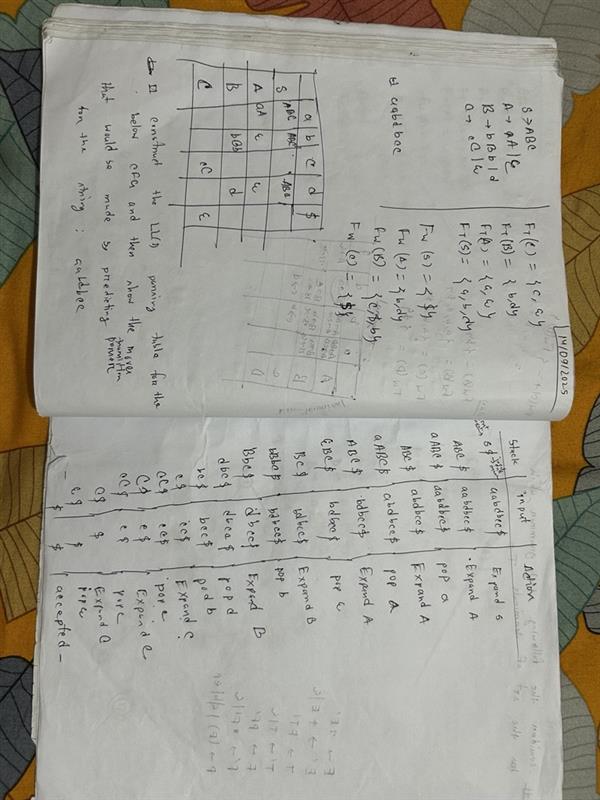 14/09/2025
S → ABC
A → aA | ε
B → bBb | d
C → cC | ε
FT(C) = {c, ε}
FT(B) = {b, d}
FT(A) = {a, ε}
FT(S) = {a, b, d}
FW(S) = {$}
FW(A) = {b, d}
FW(B) = {c, $, b}
FW(C) = {$}
aabdbcc
a | b | c | d | $
S ABC ABC ABC
A aA ε ε
B bBb d
C cC ε
construct the LL(1) parsing table for the
below CFG and then show the moves
that would be made by predictive parser
for the string : aabdbcc
Stack | input | Action
S$ aabdbcc$ Expand S
ABC$ aabdbcc$ Expand A
aABC$ aabdbcc$ pop a
ABC$ abdbcc$ Expand A
aABC$ abdbcc$ pop a
ABC$ bdbcc$ Expand A
εBC$ bdbcc$ pop ε
BC$ bdbcc$ Expand B
bBbc$ bdbcc$ pop b
Bbc$ dbcc$ Expand B
dbc$ dbcc$ pop d
bc$ bcc$ pop b
c$ cc$ Expand C
cC$ cc$ pop c
C$ c$ Expand C
cC$ c$ pop c
C$ $ Expand C
ε$ $ pop ε
– $ accepted –